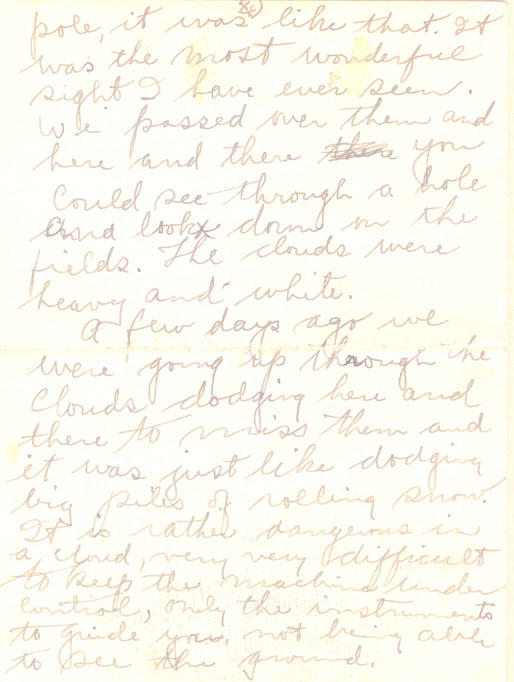 pole, it was like that. It
was the most wonderful
sight I have ever seen.
We passed over them and
here and there there you
could see through a hole
and look down on the
fields. The clouds were
heavy and white.
A few days ago we
were going up through the
clouds dodging here and
there to miss them and
it was just like dodging
big piles of rolling snow.
It is rather dangerous in
a cloud, very very difficult
to keep the machine under
control, only the instruments
to guide you, not being able
to see the ground.